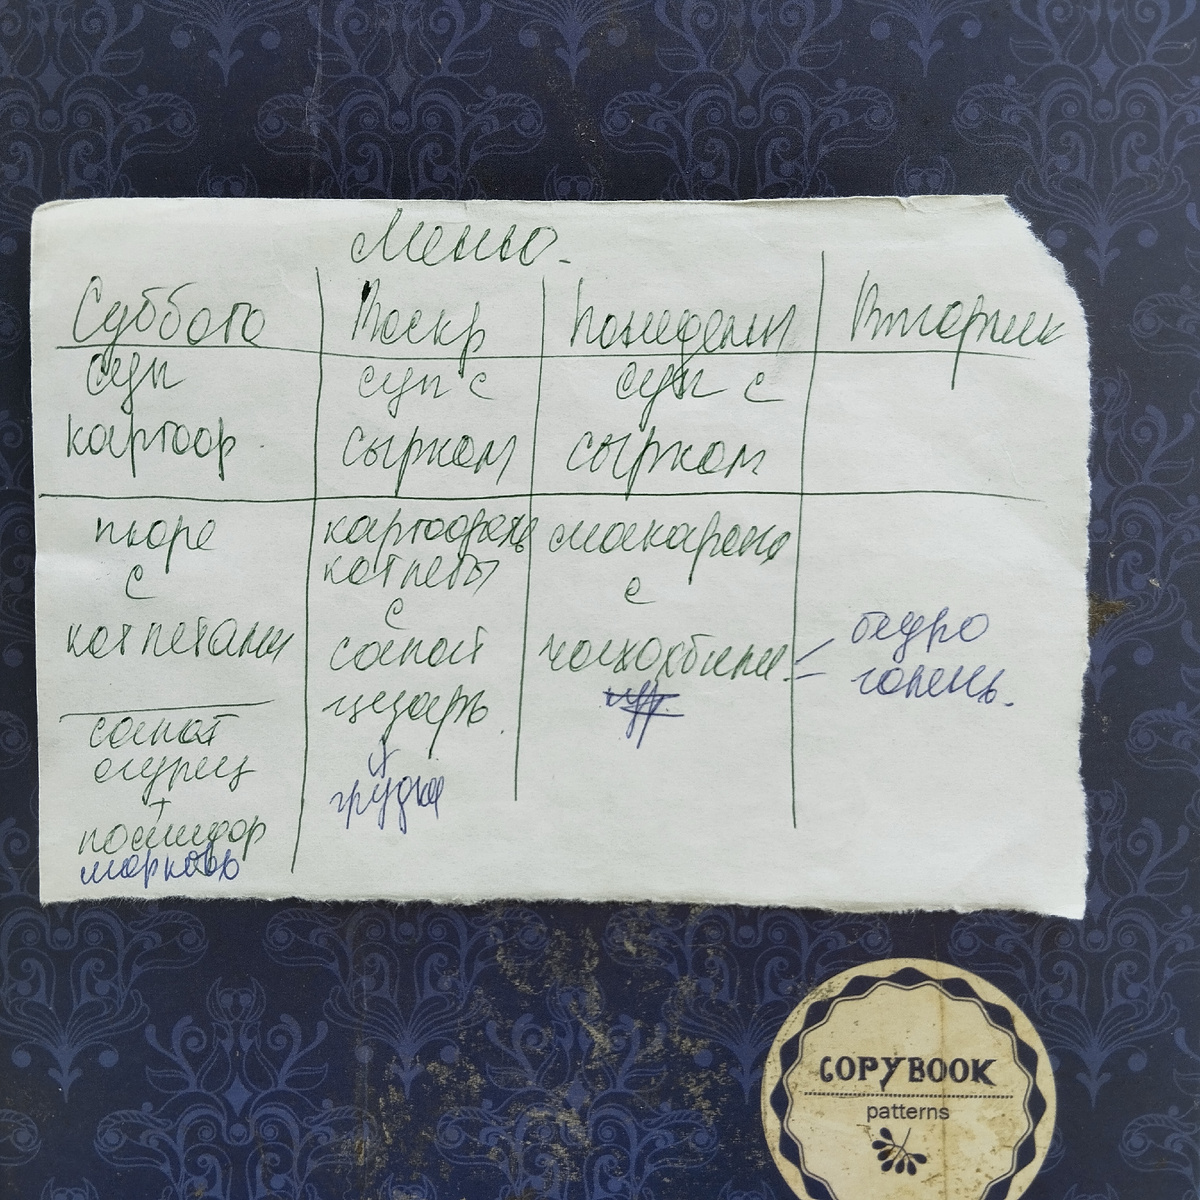 Меню.
Суббота
суп
картоф.
пюре
с
котлетами
салат
огурец
+
помидор
морковь
Воскр
суп с
сырком
картофель
котлеты
с
салат
цезарь.
+
грудка
Понедельн
суп с
сырком
макароны
с
чахохбили.
Вторник
бедро
голень.
COPYBOOK
patterns